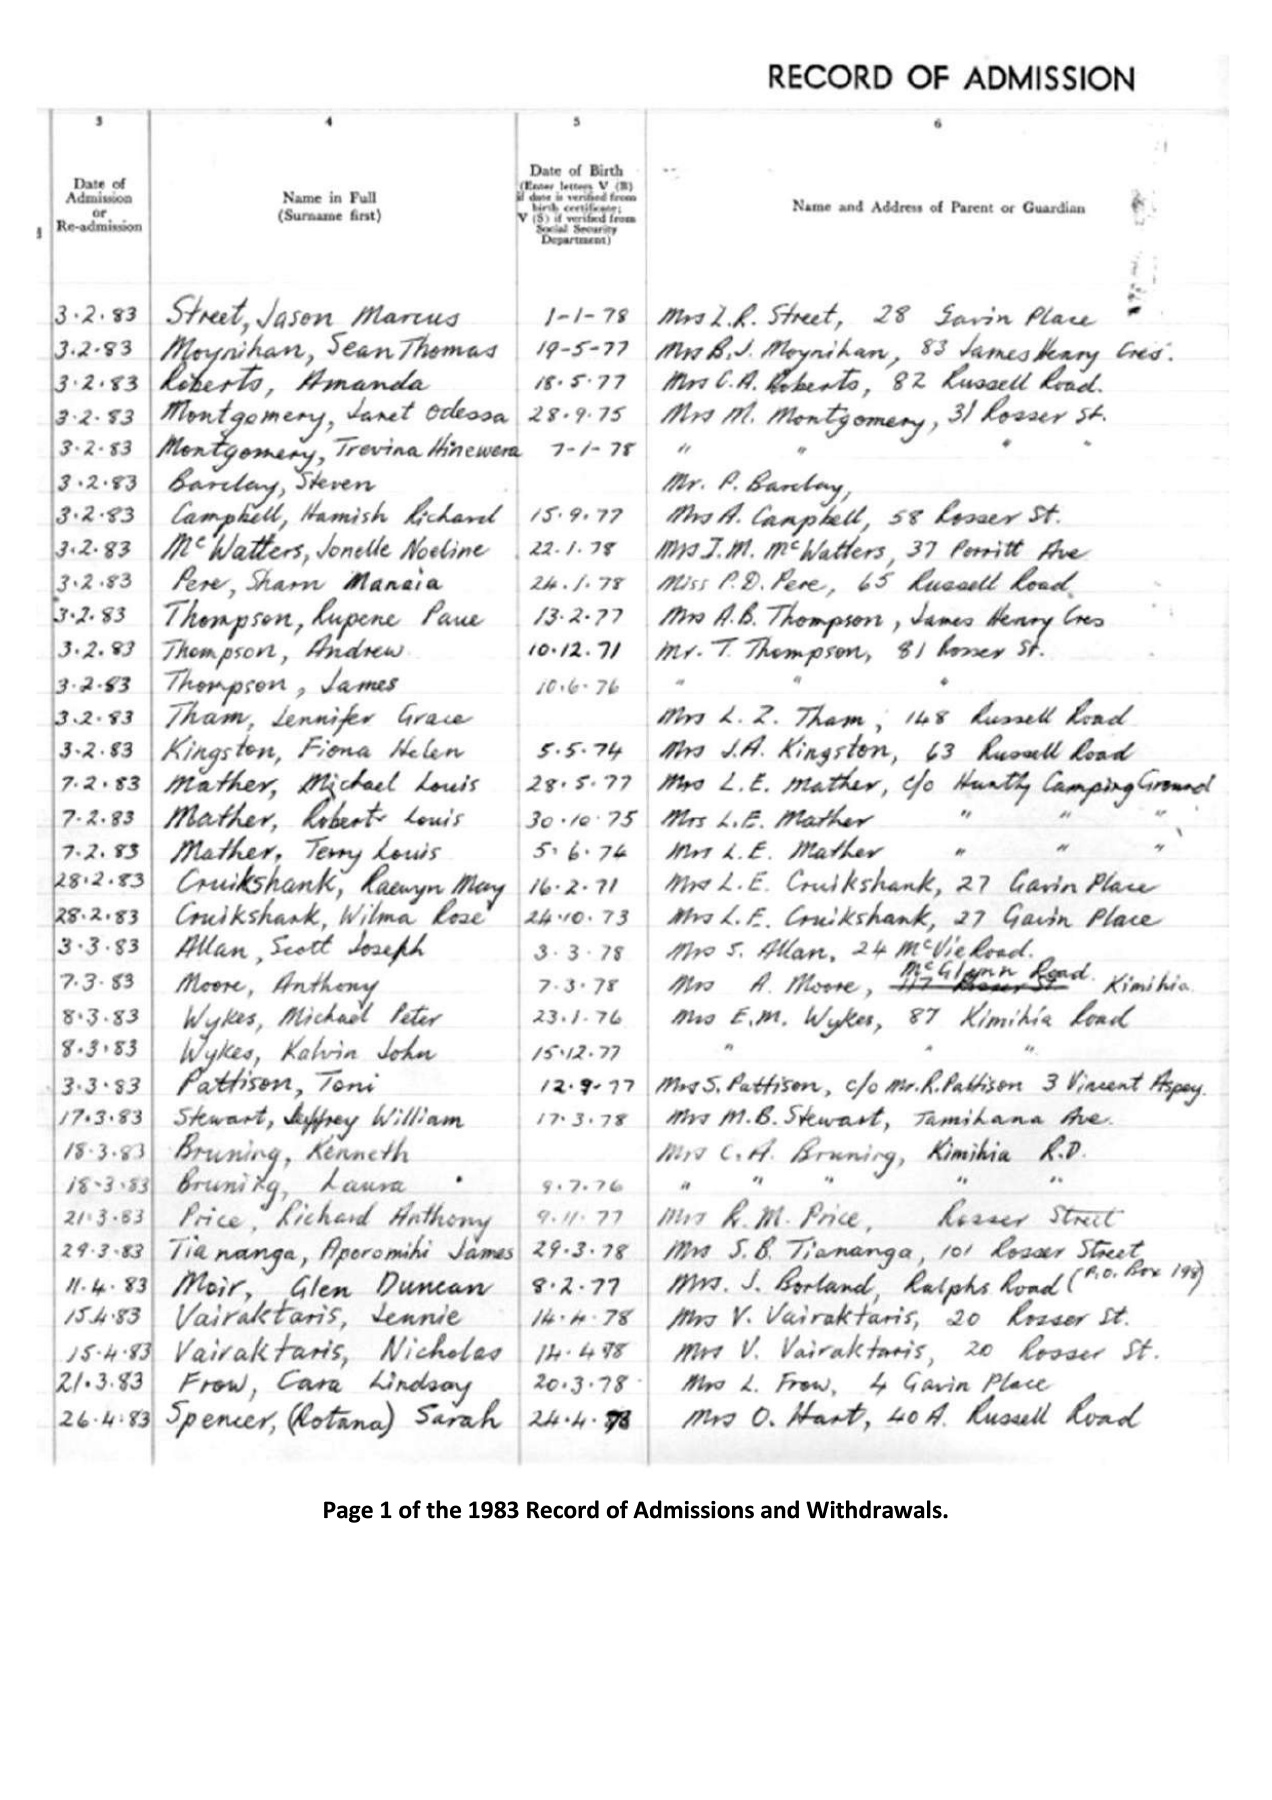 RECORD OF ADMISSION
3 4 5 6
Date of Admission or Re-admission
Name in Full (Surname first)
Date of Birth (Enter letters V (B) if date is verified from birth certificate; V (S) if verified from Social Security Department)
Name and Address of Parent or Guardian
3.2.83 Street, Jason Marcus 1-1-78 Mrs L.R. Street, 28 Gavin Place
3.2.83 Moynihan, Sean Thomas 19-5-77 Mrs B.J. Moynihan, 83 James Henry Cres.
3.2.83 Roberts, Amanda 18.5.77 Mrs C.A. Roberts, 82 Russell Road.
3.2.83 Montgomery, Janet Odessa 28.9.75 Mrs M. Montgomery, 31 Rosser St.
3.2.83 Montgomery, Trevina Hinewera 7-1-78 " " " "
3.2.83 Barclay, Steven Mr. P. Barclay,
3.2.83 Campbell, Hamish Richard 15.9.77 Mrs A. Campbell, 58 Rosser St.
3.2.83 McWatters, Jonelle Noeline 22.1.78 Mrs I.M. McWatters, 37 Porritt Ave
3.2.83 Pere, Sharn Manaia 24.1.78 Miss P.D. Pere, 65 Russell Road.
3.2.83 Thompson, Rupene Paue 13.2.77 Mrs A.B. Thompson, James Henry Cres
3.2.83 Thompson, Andrew 10.12.71 Mr. T. Thompson, 81 Rosser St.
3.2.83 Thompson, James 10.6.76 " " "
3.2.83 Tham, Jennifer Grace Mrs L. Z. Tham, 148 Russell Road
3.2.83 Kingston, Fiona Helen 5.5.74 Mrs J.A. Kingston, 63 Russell Road
7.2.83 Mather, Michael Louis 28.5.77 Mrs L.E. Mather, c/o Huntly Camping Ground
7.2.83 Mather, Robert Louis 30.10.75 Mrs L.E. Mather " " "
7.2.83 Mather, Terry Louis 5.6.74 Mrs L.E. Mather " " "
28.2.83 Cruikshank, Raewyn May 16.2.71 Mrs L.E. Cruikshank, 27 Gavin Place
28.2.83 Cruikshank, Wilma Rose 24.10.73 Mrs L.E. Cruikshank, 27 Gavin Place
3.3.83 Allan, Scott Joseph 3.3.78 Mrs S. Allan, 24 McVie Road.
7.3.83 Moore, Anthony 7.3.78 Mrs A. Moore, McGlynn Road. Kimihia
8.3.83 Wykes, Michael Peter 23.1.76 Mrs E.M. Wykes, 87 Kimihia Road
8.3.83 Wykes, Kalvin John 15.12.77 " " "
3.3.83 Pattison, Toni 12.9.77 Mrs S. Pattison, c/o Mr. R. Pattison 3 Vincent Aspey.
17.3.83 Stewart, Jeffrey William 17.3.78 Mrs M.B. Stewart, Tamihana Ave.
18.3.83 Bruning, Kenneth Mrs C.A. Bruning, Kimihia R.D.
18.3.83 Bruning, Laura 9.7.76 " " " " "
21.3.83 Price, Richard Anthony 9.11.77 Mrs R.M. Price, Rosser Street
29.3.83 Tiananga, Aporomihi James 29.3.78 Mrs S.B. Tiananga, 101 Rosser Street
11.4.83 Moir, Glen Duncan 8.2.77 Mrs. J. Borland, Ralphs Road (P.O. Box 198)
15.4.83 Vairaktaris, Jennie 14.4.78 Mrs V. Vairaktaris, 20 Rosser St.
15.4.83 Vairaktaris, Nicholas 14.4.78 Mrs V. Vairaktaris, 20 Rosser St.
21.3.83 Frow, Cara Lindsay 20.3.78 Mrs L. Frow, 4 Gavin Place
26.4.83 Spencer, (Rotana) Sarah 24.4.78 Mrs O. Hart, 40A. Russell Road
Page 1 of the 1983 Record of Admissions and Withdrawals.